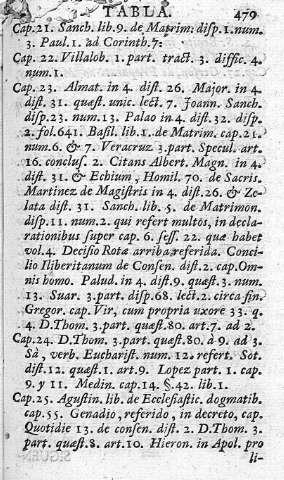 TABLA. 479
Cap.21. Sanch. lib.9. de Matrim: disp.1.num.
3. Paul.1. ad Corinth.7:
Cap.22. Villalob. 1.part. tract. 3. diffic. 4.
num.1.
Cap.23. Almat. in 4. dist. 26. Major. in 4.
dist. 31. quæst. unic. lect. 7. Joann. Sanch.
disp.23. num.13. Palao in 4. dist.32. disp.
2.fol.641. Basil. lib.1. de Matrim. cap.21.
num.6. & 7. Veracruz 3.part. Specul. art.
16. conclus. 2. Citans Albert. Magn. in 4.
dist.31. & Echium, Homil. 70. de Sacris.
Martinez de Magistris in 4. dist.26. & Ze-
lata dist. 31. Sanch. lib. 5. de Matrimon.
disp.11. num.2. qui refert multos, in decla-
rationibus super cap. 6. sess. 22. quæ habet
vol.4. Decisio Rotæ arriba referida. Conci-
lio Iliberitanum de Consen. dist.2. cap.Om-
nis homo. Palud. in 4. dist.9. quæst.3. num.
13. Suar. 3.part. disp.68. lect.2. circa fin.
Gregor. cap. Vir, cum propria uxore 33. q.
4. D.Thom. 3.part. quæst.80. art.7. ad 2.
Cap.24. D.Thom. 3.part. quæst.80. à 9. ad 3.
Sà, verb. Eucharist. num. 12. refert. Sot.
dist.12. quæst.1. art.9. Lopez part.1. cap.
9. y 11. Medin. cap.14. §.42. lib.1.
Cap.25. Agustin. lib. de Ecclesiastic. dogmatib.
cap.55. Genadio, referido, in decreto, cap.
Quotidie 13. de consen. dist. 2. D.Thom. 3.
part. quæst.8. art.10. Hieron. in Apol. pro
li-